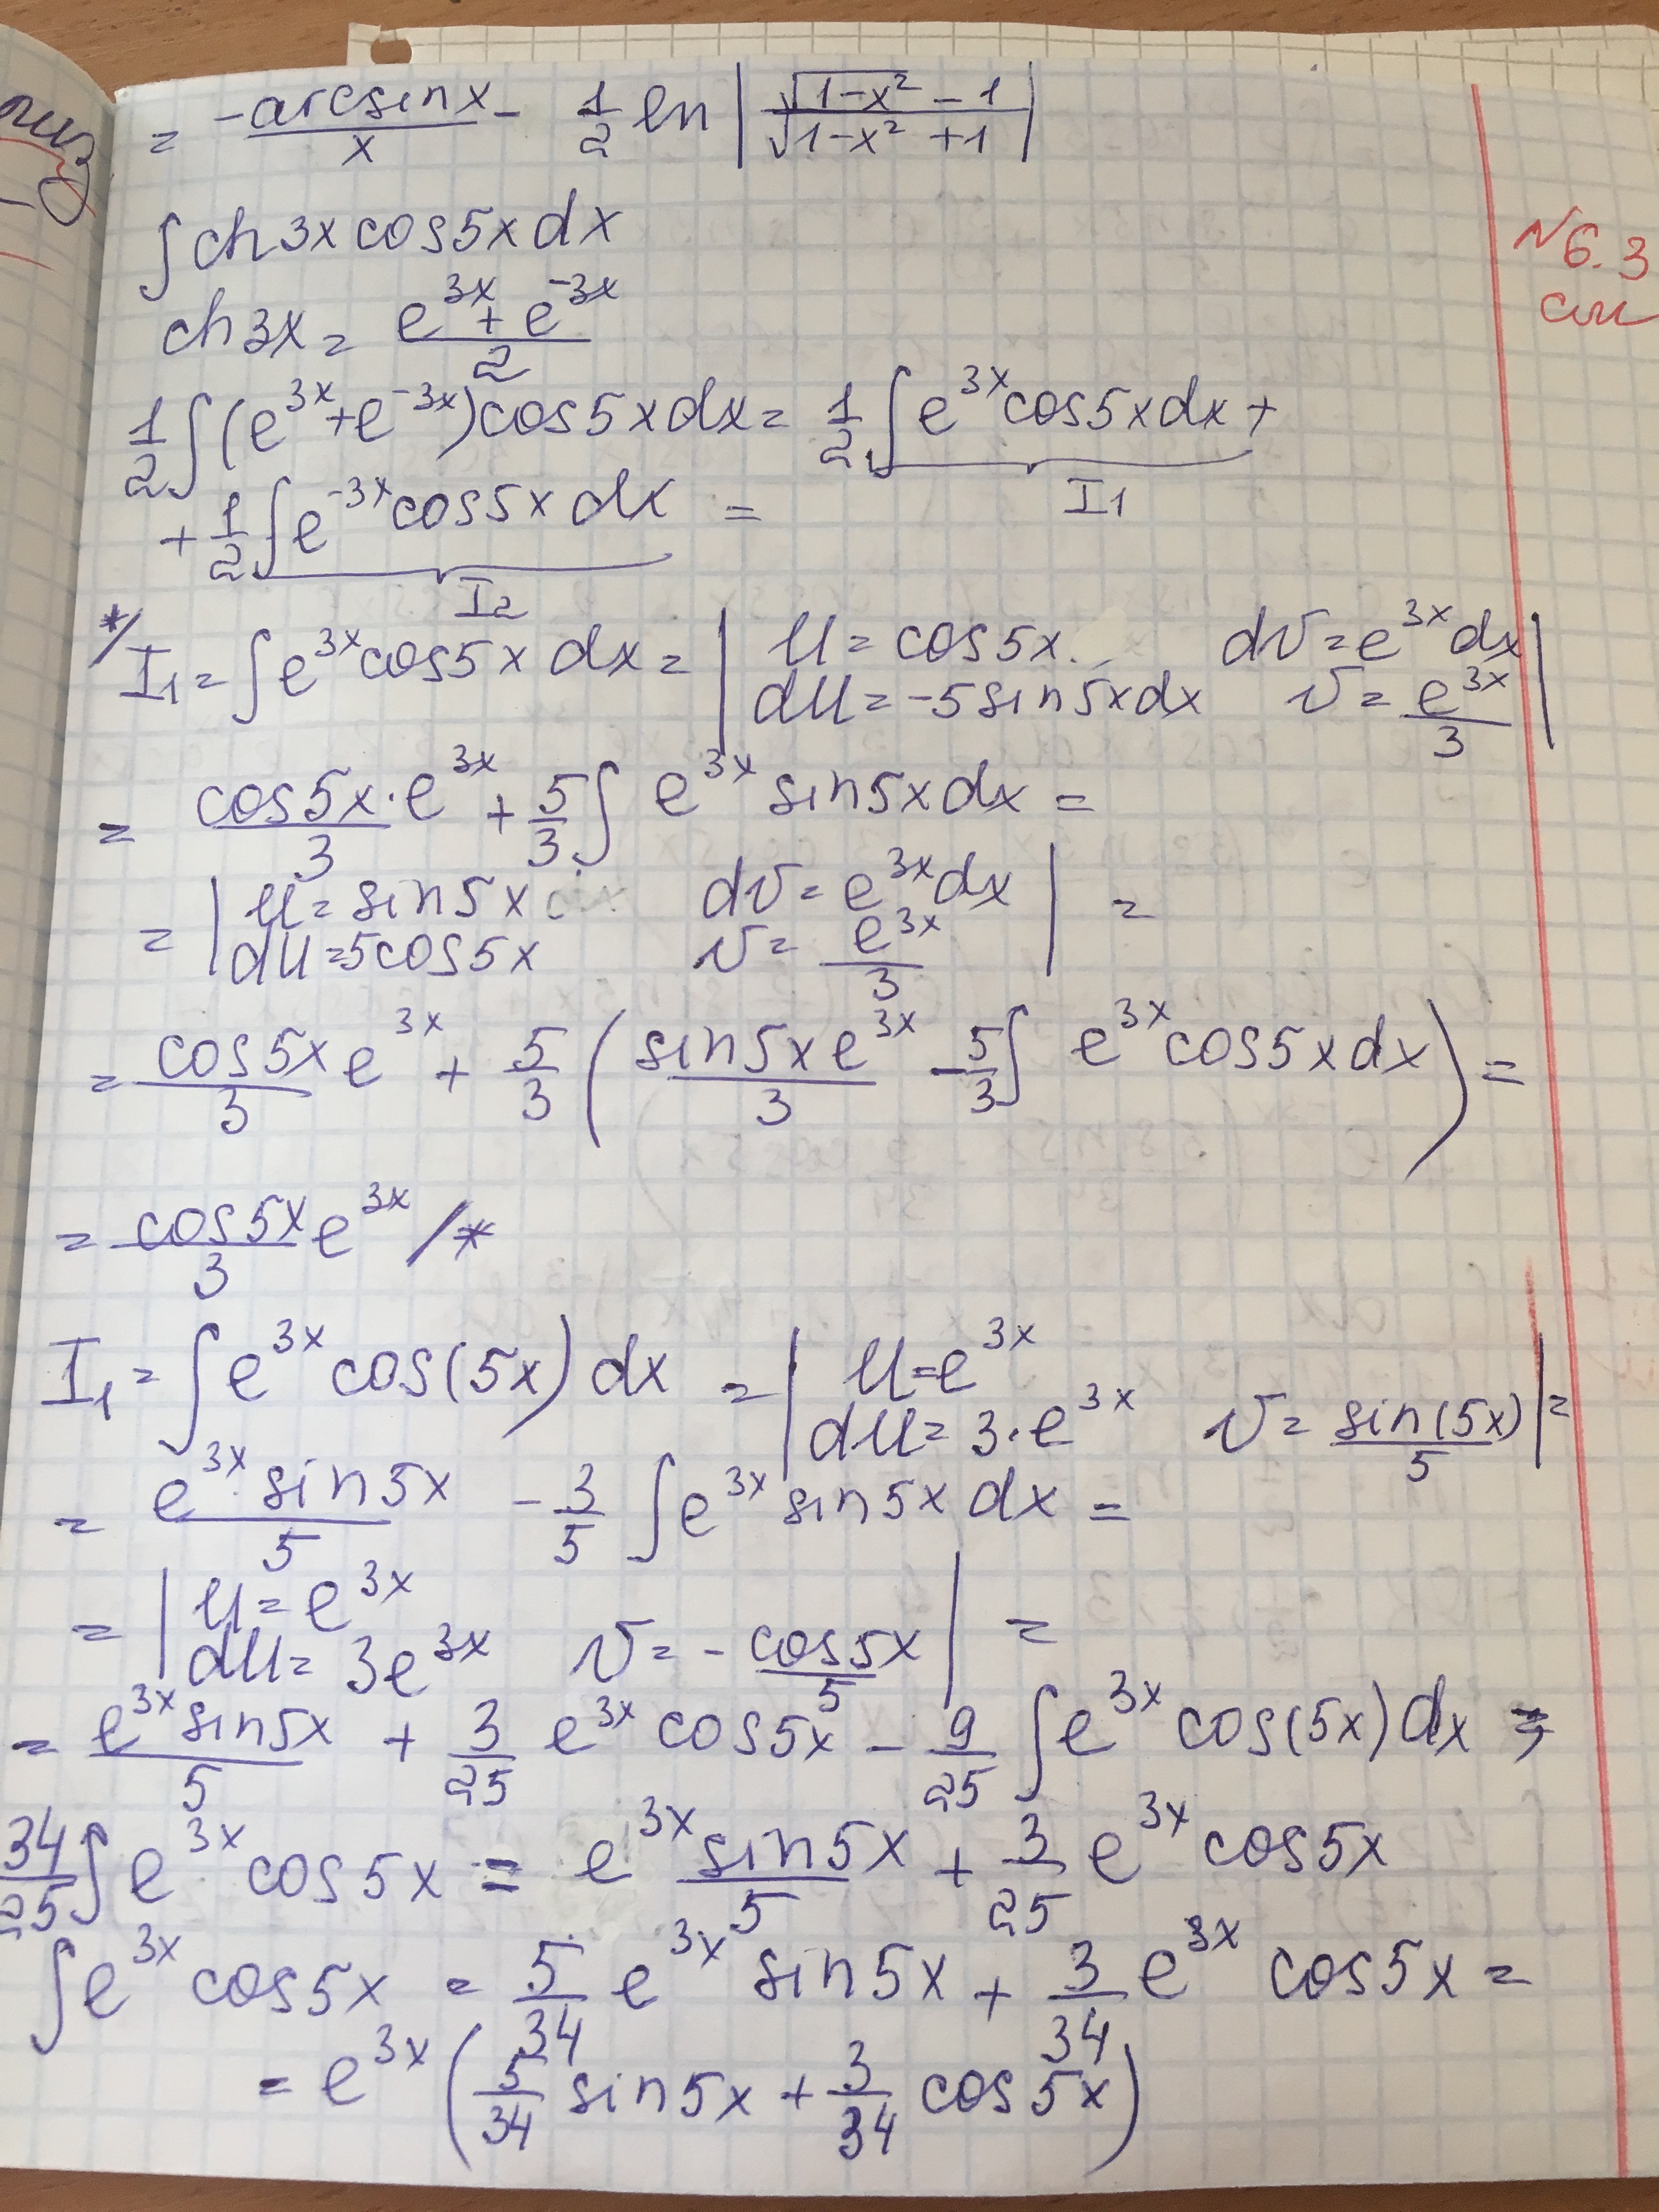 = -arcsinx/x - 1/2 ln |(√(1-x²) - 1)/(√(1-x²) + 1)|
∫ch3xcos5xdx
N6.3
ch3x = (e^(3x) + e^(-3x))/2
1/2 ∫(e^(3x)+e^(-3x))cos5xdx = 1/2 ∫e^(3x)cos5xdx +
I1
+ 1/2 ∫e^(-3x)cos5xdx =
I2
*/ I1 = ∫e^(3x)cos5xdx = | u = cos5x dv = e^(3x)dx
du = -5sin5xdx v = e^(3x)/3 |
= cos5x/3·e^(3x) + 5/3 ∫ e^(3x) sin5xdx =
= | u = sin5x dv = e^(3x)dx
du = 5cos5x v = e^(3x)/3 | =
= cos5x/3 e^(3x) + 5/3 (sin5xe^(3x)/3 - 5/3 ∫ e^(3x)cos5xdx) =
= cos5x/3 e^(3x) /*
I1 = ∫e^(3x)cos(5x)dx = | u = e^(3x)
du = 3·e^(3x) v = sin(5x)/5 | =
= e^(3x)sin5x/5 - 3/5 ∫e^(3x)sin5xdx =
= | u = e^(3x)
du = 3e^(3x) v = -cos5x/5 | =
= e^(3x)sin5x/5 + 3/25 e^(3x)cos5x - 9/25 ∫e^(3x)cos(5x)dx =
34/25 ∫e^(3x)cos5x = e^(3x) sin5x/5 + 3/25 e^(3x)cos5x
∫e^(3x)cos5x = 5/34 e^(3x)sin5x + 3/34 e^(3x)cos5x =
= e^(3x)(5/34 sin5x + 3/34 cos5x)